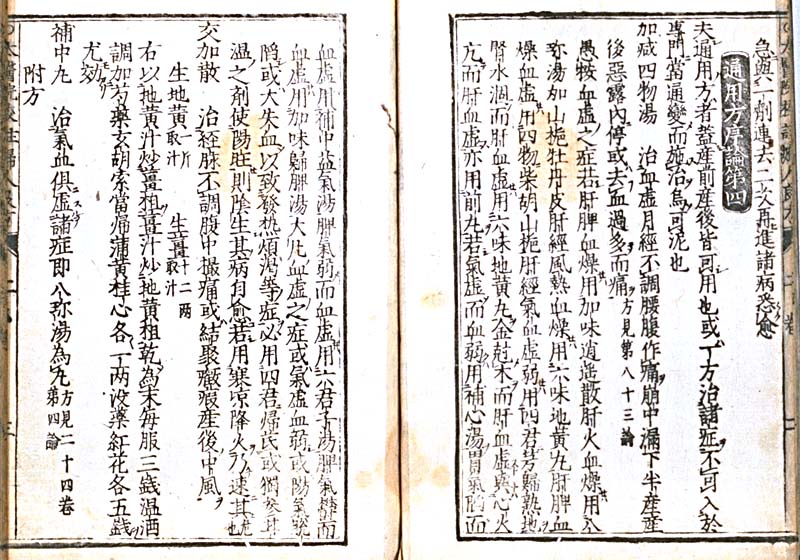 急與一劑連去二次再進諸病悉愈
通用方序論第四
夫通用方者蓋産前産後皆可用也或一方治諸症不可入於
專門當通變而施治烏可泥也
加减四物湯 治血虛月經不調腰腹作痛崩中漏下半産産
後惡露内停或去血過多而痛 方見第八十三論
愚按血虛之症若肝脾血燥用加味逍遙散肝火血燥用八
珎湯加山梔牡丹皮肝經風熱血燥用六味地黄丸肝脾血
燥血虛用四物柴胡山梔肝經氣血虛弱用四君芎歸熟地
腎水涸而肝血虛用六味地黄丸金尅木而肝血虛與心火
亢而肝血虛亦用前丸若氣虛而血弱用補心湯胃氣而
血虛用補中益氣湯脾氣弱而血虛用六君子湯脾氣鬱而
血虛用加味歸脾湯大凡血虛之症或氣虛血弱或陽氣脱
陷或大失血以致發熱煩渇等症必用四君歸芪或獨參甘
温之劑使陽旺則陰生其病自愈若用寒凉降火乃速其危也
交加散 治經脉不調腹中撮痛或結聚癥瘕産後中風
生地黄一斤取汁 生薑十二兩取汁
右以地黄汁炒薑柤薑汁炒地黄柤乾為末每服三錢温酒
調加芍藥玄胡索當歸蒲黄桂心各一兩没藥紅花各五錢
尤効
補中丸 治氣血俱虛諸症即八珎湯為丸 方見二十四卷第四論
附方